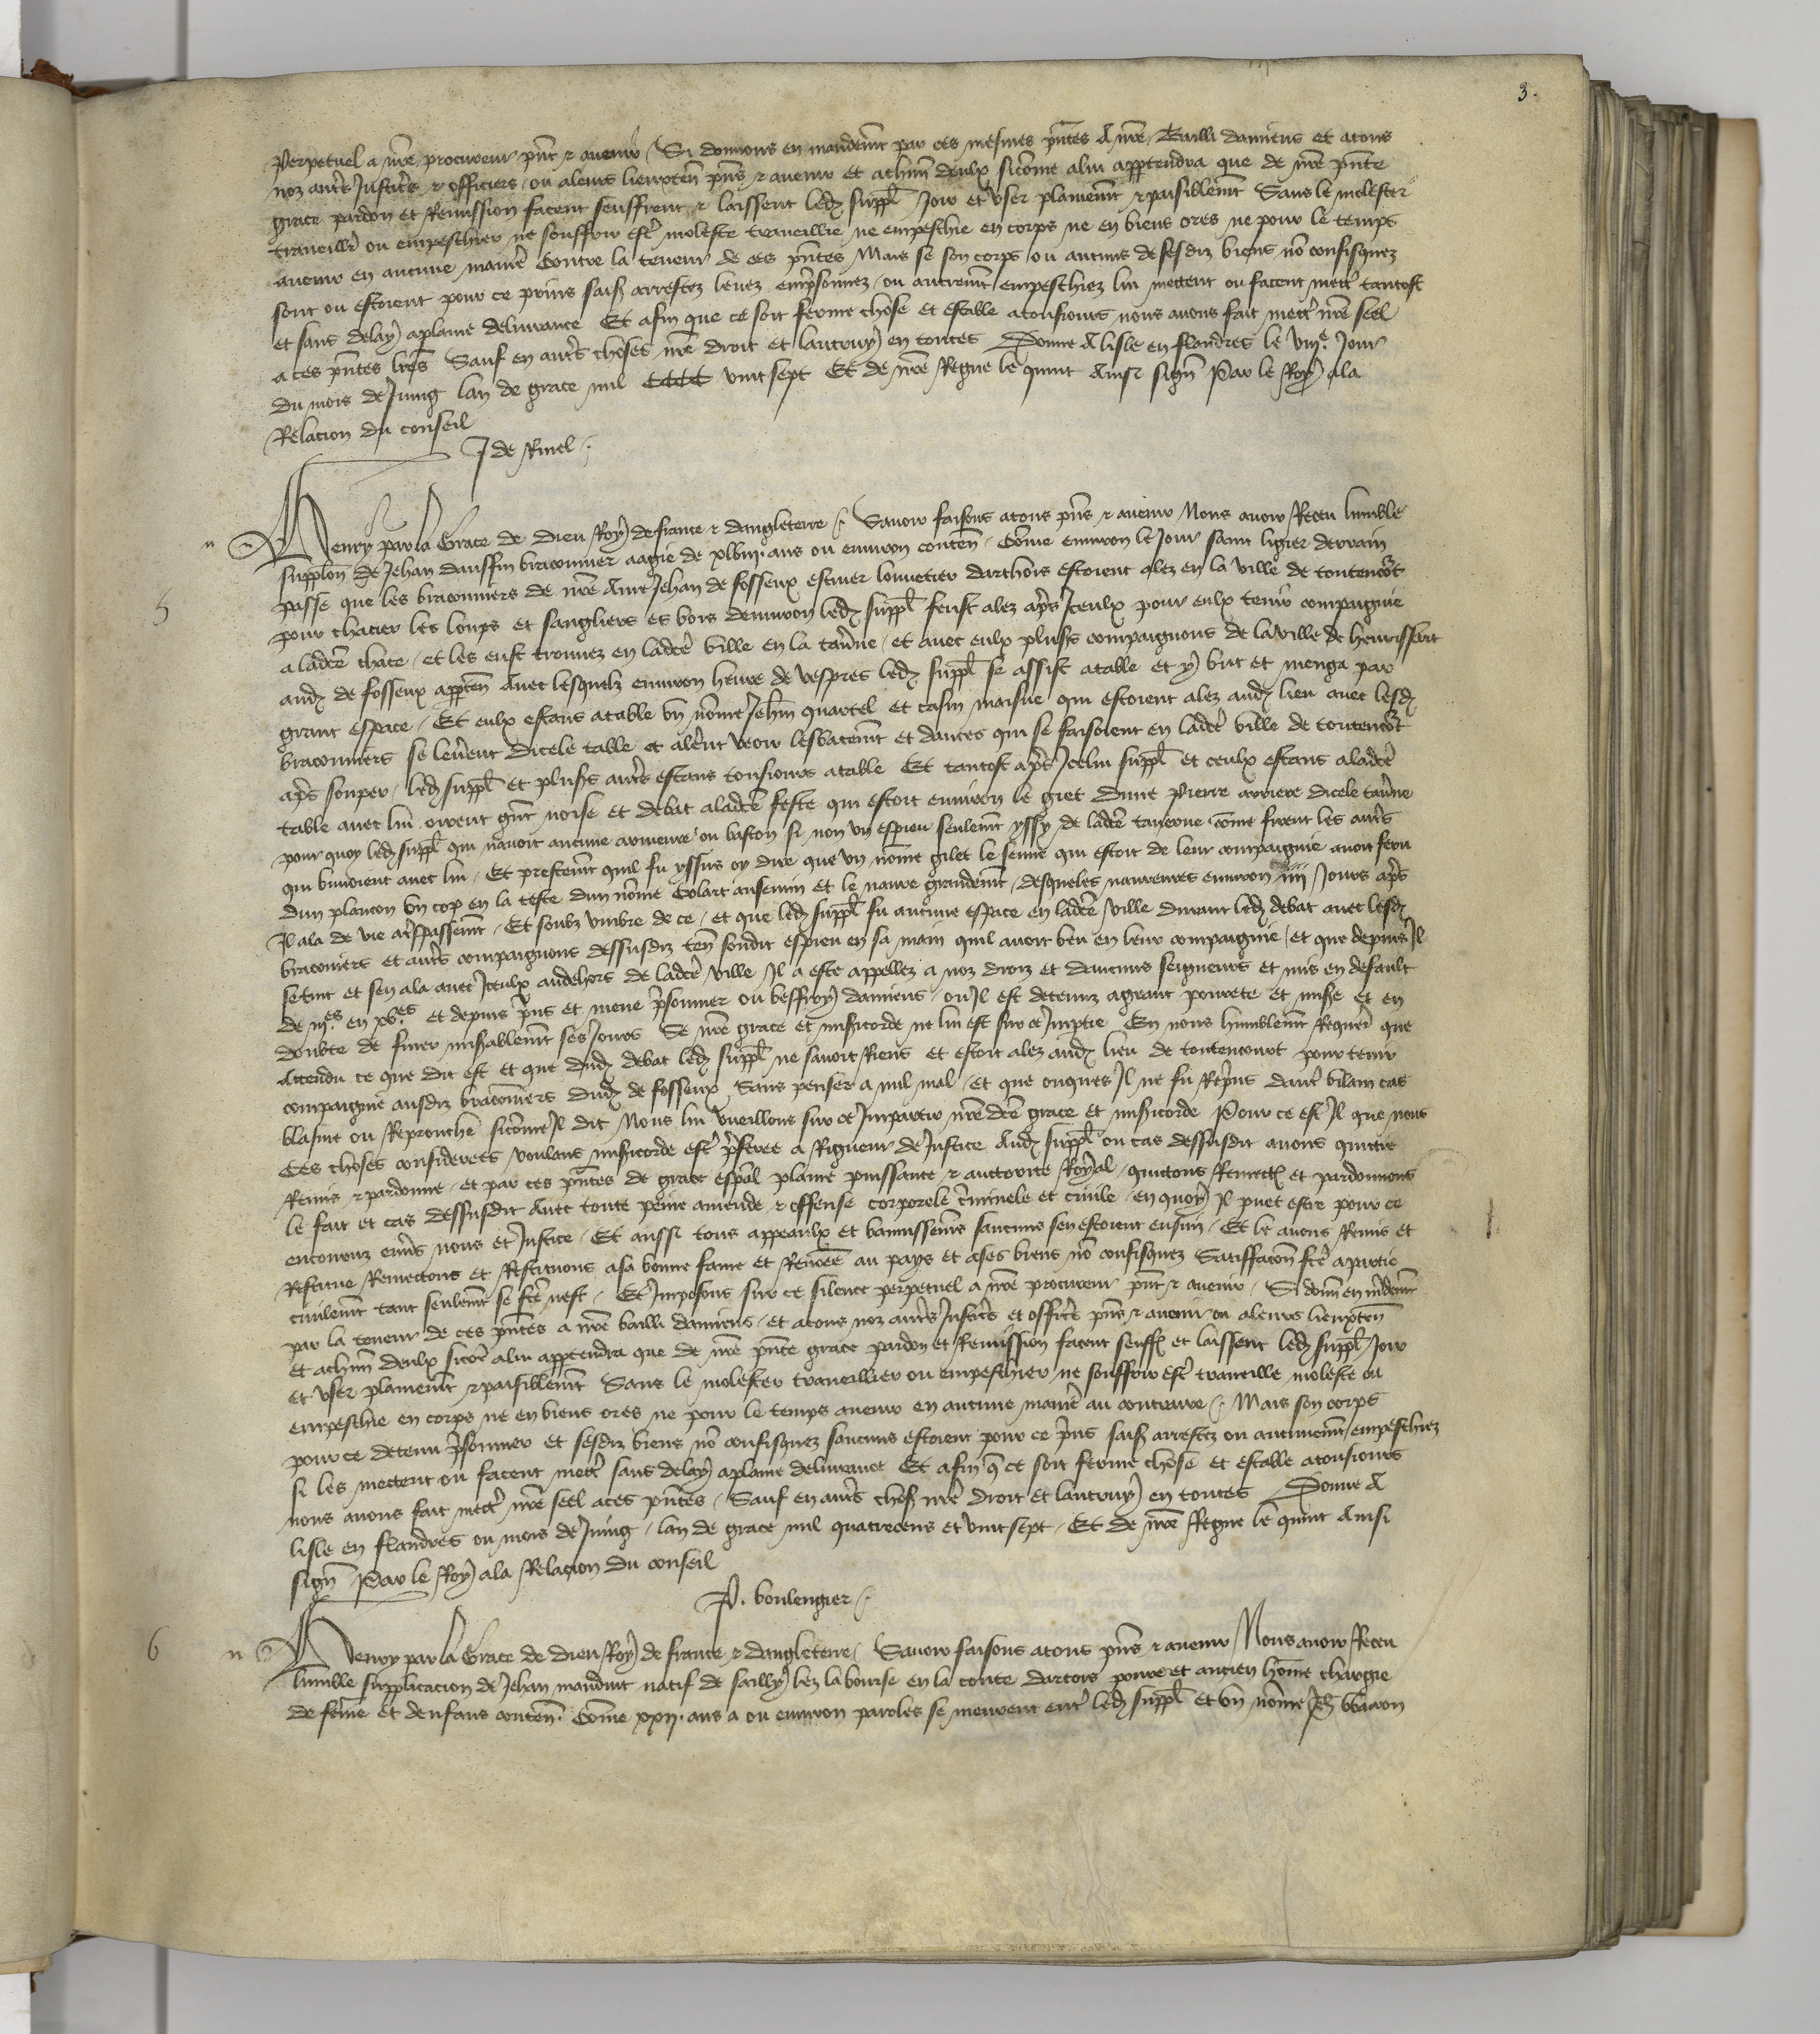 3.
perpetuel a nre procureur pnt & auenir / Si donnons en mandemt par ces mesmes pntes A nre Bailli damiens et atous
noz autrs Justicrs & officiers / ou aleurs lieuxten pns & auenir et achun deulx sicome alui apptendra que de nre pnte
grace pardon et Remission facent seuffrent & laissent led suppl Joir et vser plainemt & paisiblemt Sans le molester
traueillr ou empeschier ne souffrir estr moleste traueillie ne empeschie en corps ne en biens ores ne pour le temps
auenir en aucune manier Contre la teneur de ces pntes Mais se son corps ou aucuns de sesdiz biens no confisquez
sont ou estoient pour ce prins saisz arrestez leuez emprsonnez / ou autremt empeschiez lui mettent ou facent mettr tantost
et sans delay aplaine deliurance Et afin que ce soit ferme chose et estable atousiours nous auons fait mettr nre seel
a ces pntes lres Sauf en autrs choses nre droit et lautruy en toutes Donne A lisle en flandres le viije. Jour
du mois de Juing lan de grace mil CCCC vint sept Et de nre Regne le quint Ainsi sign Par le Roy ala
Relacion du conseil
J de Rinel /
5
n Henry par la Grace de dieu Roy de france & dangleterre / Sauoir faisons atous pns & auenir Nous auoir Receu lumble
supplon de Jehan dauffin braconnier aagie de xlviij. ans ou enuiron conten / Come enuiron le Jour saint ligier derrain
passe que les braconniers de nre Ame Jehan de fosseux escuier louuetier darthois estoient alez en la ville de toutencort
pour chacier les loups et sangliers es bois denuiron led suppl feust alez aprs Iceulx pour eulx tenir compaignie
a ladce chace / et les eust trouuez en ladce ville en la tauerne / et auec eulx plusrs compaignons de la ville de henissart
aud de fosseux appten Auec lesquelz enuiron heure de vespres led suppl se assist atable et y but et menga par
grant espace / Et eulx estans atable vn nome Jehn quartel et casin maisue qui estoient alez aud lieu auec lesd
braconniers se leuerent dicele table et alernt veoir lesbatemt et dances qui se faisoient en ladce ville de toutencort
aprs souper / led suppl et plusrs autrs estans tousiours atable Et tantost aprs Icelui suppl et ceulx estans aladce
table auec lui oirent grt noise et debat aladce feste qui estoit enuiron le giet dune pierre arriere dicele tauerne
pour quoy led suppl qui nauoit aucune armeure ou baston si non vn espieu seulemt yssy de ladce tauerne come firent les autrs
qui buuoient auec lui / Et prestemt quil fu yssus oy dire que vn nome gilet le senne qui estoit de leur compaignie auoit feru
dun plancon vn cop en la teste dun nome Colart ansemin et le naure grandemt / desqueles naureures enuiron iiij Jours aprs
Il ala de vie atrspassemt / Et soubz vmbre de ce / et que led suppl fu aucune espace en ladce ville durant led debat auec lesd
braconniers et autrs compaignons dessusdiz ten sondit espieu en sa main quil auoit beu en leur compaignie / et que depuis Il
se tint et sen ala auec Iceulx audehors de ladce ville Il a este appellez a noz droiz et daucuns seigneurs et mis en default
de iijes en xves et depuis prns et mene prsonnier ou beffroy damiens / ou Il est detenuz agrant pourete et misre et en
doubte de finer misrablemt ses Jours Se nre grace et misricorde ne lui est sur ce Imptie En nous humblemt Requert que
Attendu ce que dit est et que dud debat led suppl ne sauoit Riens et estoit alez aud lieu de toutencourt pour tenir
compaignie ausdiz braconniers dud de fosseux Sans penser a nul mal / et que onques Il ne fu Reprns dautr vilain cas
blasme ou Reprouche sicome Il dit Nous lui vueillons sur ce Impartir nre dce grace et misricorde Pour ce est Il que nous
Ces choses considerees voulans misricorde estr prferee a Rigueur de Justice Aud suppl ou cas dessusdit auons quittie
Remis & pardonne / et par ces pntes de grace espal plaine puissance & auctorite Royal / quictons Remectos et pardonnons
le fait et cas dessusdit Auec toute peine amende & offense corporele criminele et ciuile / en quoy Il puet estre pour ce
encouruz enurs nous et Justice / Et aussi tous appeaulx et bannissemens saucuns sen estoient ensuiz / Et le auons Remis et
Restitue Remectons et Restituons asa bonne fame et Renomee au pays et ases biens no confisquez Satisfacon fce apartie
ciuilemt tant seulemt se fce nest / Et Imposons sur ce silence perpetuel a nre procureur pnt & auenir / Si donn en mandemt
par la teneur de ces pntes a nre bailli damiens / et atous noz autrs Justicrs et officrs pns & auenir ou aleurs lieuxten
et achun deulx sicoe alui apptendra que de nre pnte grace pardon et Remission facent seuff et laissent led suppl Joir
et vser plainemt & paisiblemt Sans le molester traueillier ou empeschier ne souffrir estr traueille moleste ou
empeschie en corps ne en biens ores ne pour le temps auenir en aucune manier au contraire / Mais son corps
pource detenu prsonnier et sesdiz biens no confisquez saucuns estoient pour ce prns saisz arrestez ou autremt empeschiez
si les mectent ou facent mettr sans delay aplaine deliurance Et afin q ce soit ferme chose et estable atousiours
nous auons fait mectr nre seel aces pntes / Sauf en autrs chos nre droit et lautruy en toutes Donne A
lisle en flandres ou mois de Juing / lan de grace mil quatrecens et vint sept / Et de nre Regne le quint Ainsi
sign Par le Roy ala Relacion du conseil
P. boulengier /
6
n Henry par la Grace de dieu Roy de france & dangleterre / Sauoir faisons atous pns & auenir Nous auoir Receu
lumble supplicacion de Jehan mauduit natif de sailly lez labourse en la conte dartois poure et ancien home chargie
de feme et denfans conten. Come xxij. ans a ou enuiron paroles se meurent entr led suppl et vn nome Jeh waron